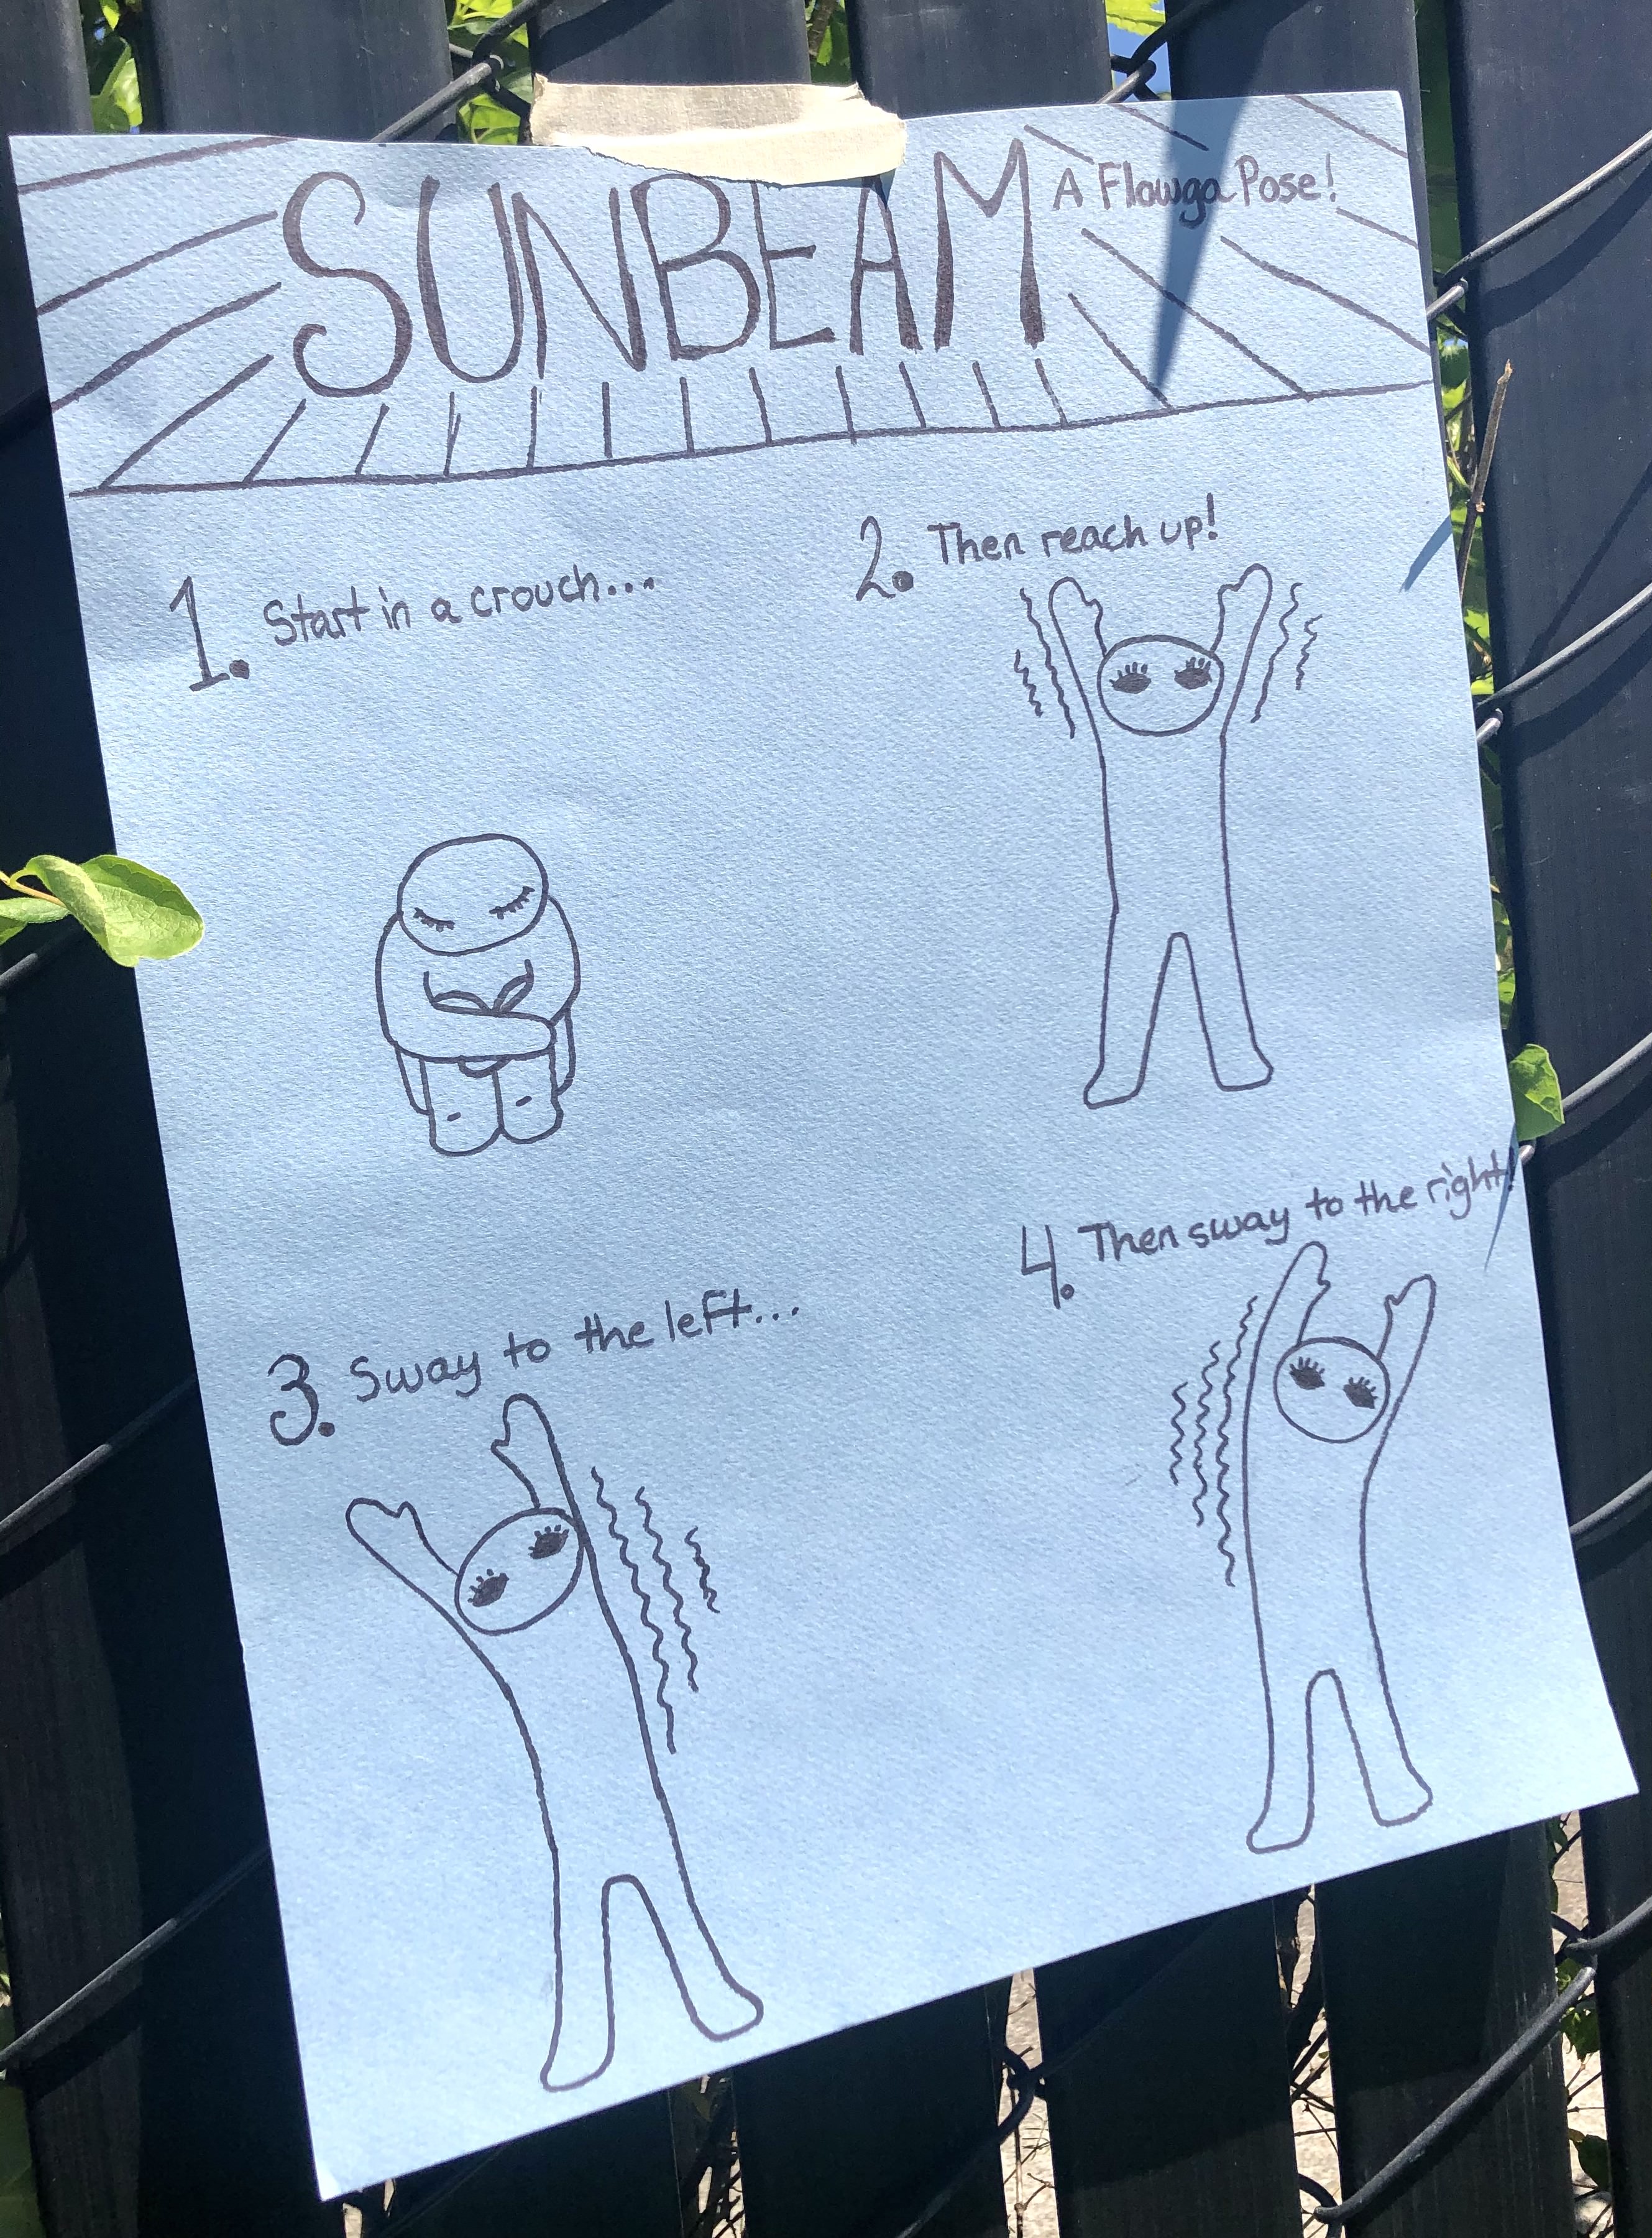 SUNBEAM
A Flowga Pose!
1. Start in a crouch....
2. Then reach up!
3. Sway to the left...
4. Then sway to the right!